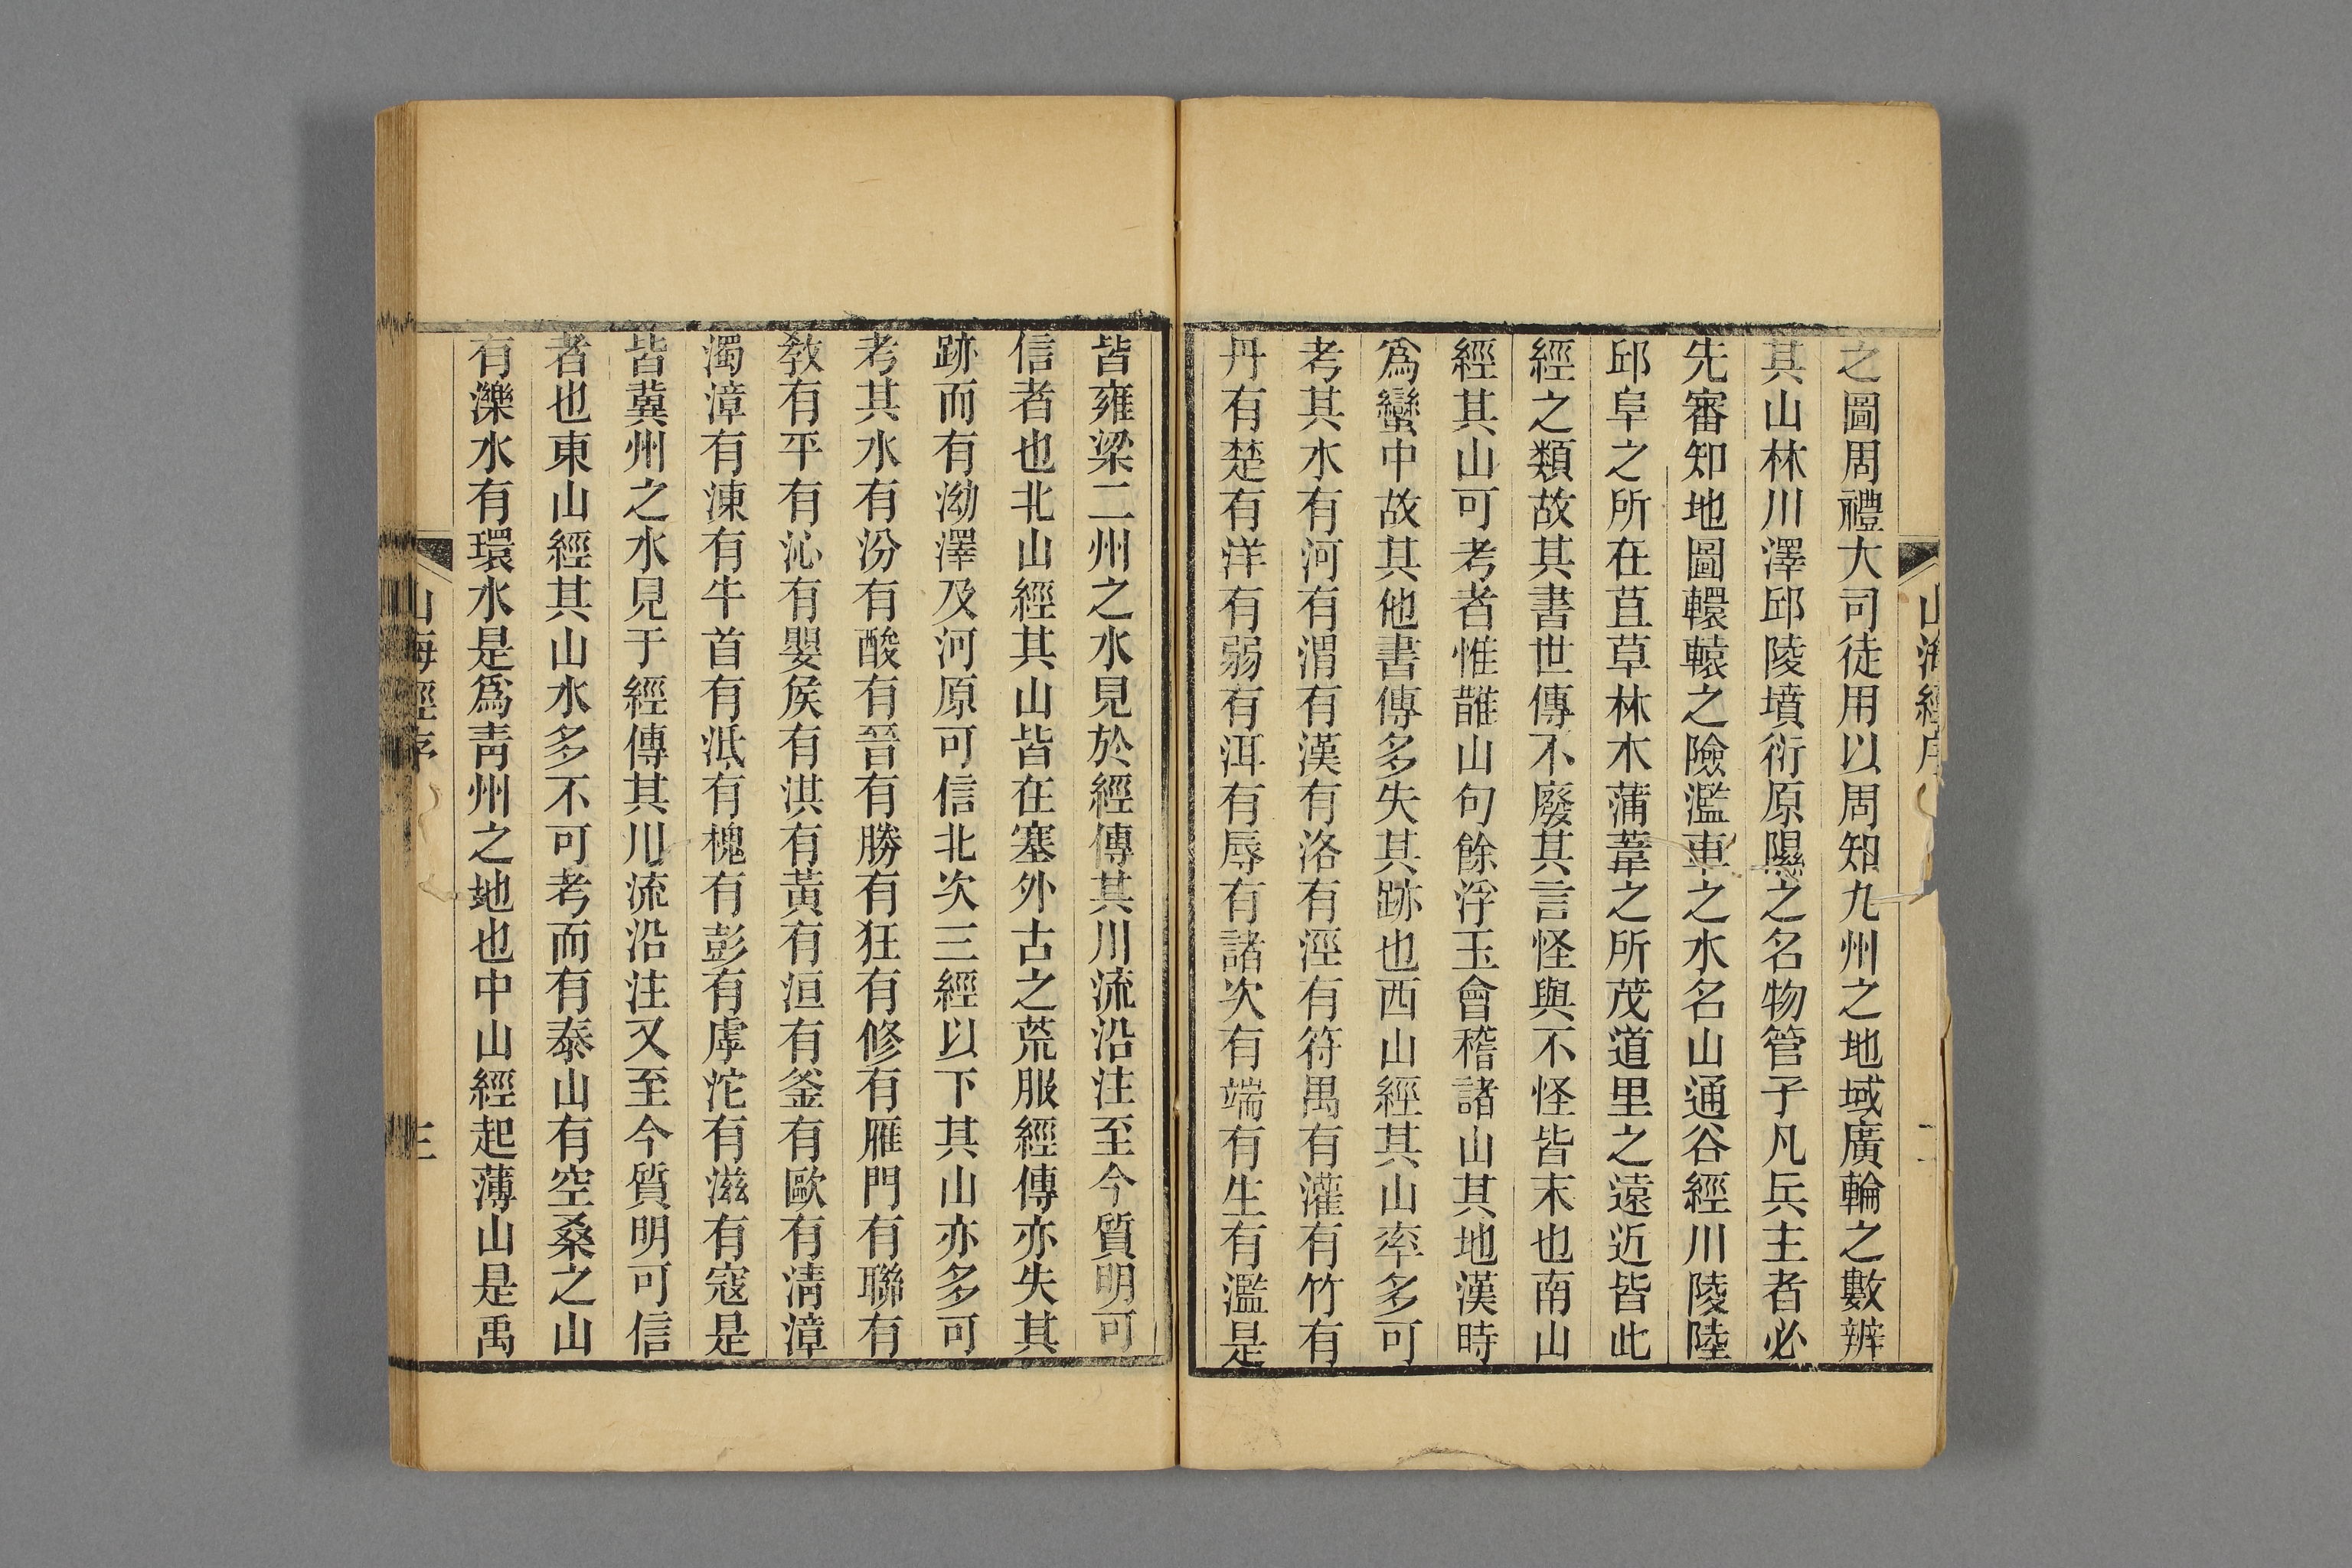 山海經序
二
之圖周禮大司徒用以周知九州之地域廣輪之數辨
其山林川澤邱陵墳衍原隰之名物管子凡兵主者必
先審知地圖轘轅之險濫車之水名山通谷經川陵陸
邱阜之所在苴草林木蒲葦之所茂道里之遠近皆此
經之類故其書世傳不廢其言怪與不怪皆末也南山
經其山可考者惟䧿山句餘浮玉會稽諸山其地漢時
爲蠻中故其他書傳多失其跡也西山經其山率多可
考其水有河有渭有漢有洛有涇有符禺有灌有竹有
丹有楚有洋有弱有洱有辱有諸次有端有生有濫是
皆雍梁二州之水見於經傳其川流沿注至今質明可
信者也北山經其山皆在塞外古之荒服經傳亦失其
跡而有泑澤及河原可信北次三經以下其山亦多可
考其水有汾有酸有晉有勝有狂有修有雁門有聯有
敎有平有沁有嬰矦有淇有黃有洹有釜有歐有淸漳
濁漳有涷有牛首有泜有槐有彭有虖沱有滋有寇是
皆冀州之水見于經傳其川流沿注又至今質明可信
者也東山經其山水多不可考而有泰山有空桑之山
有濼水有環水是爲靑州之地也中山經起薄山是禹
山海經序
三